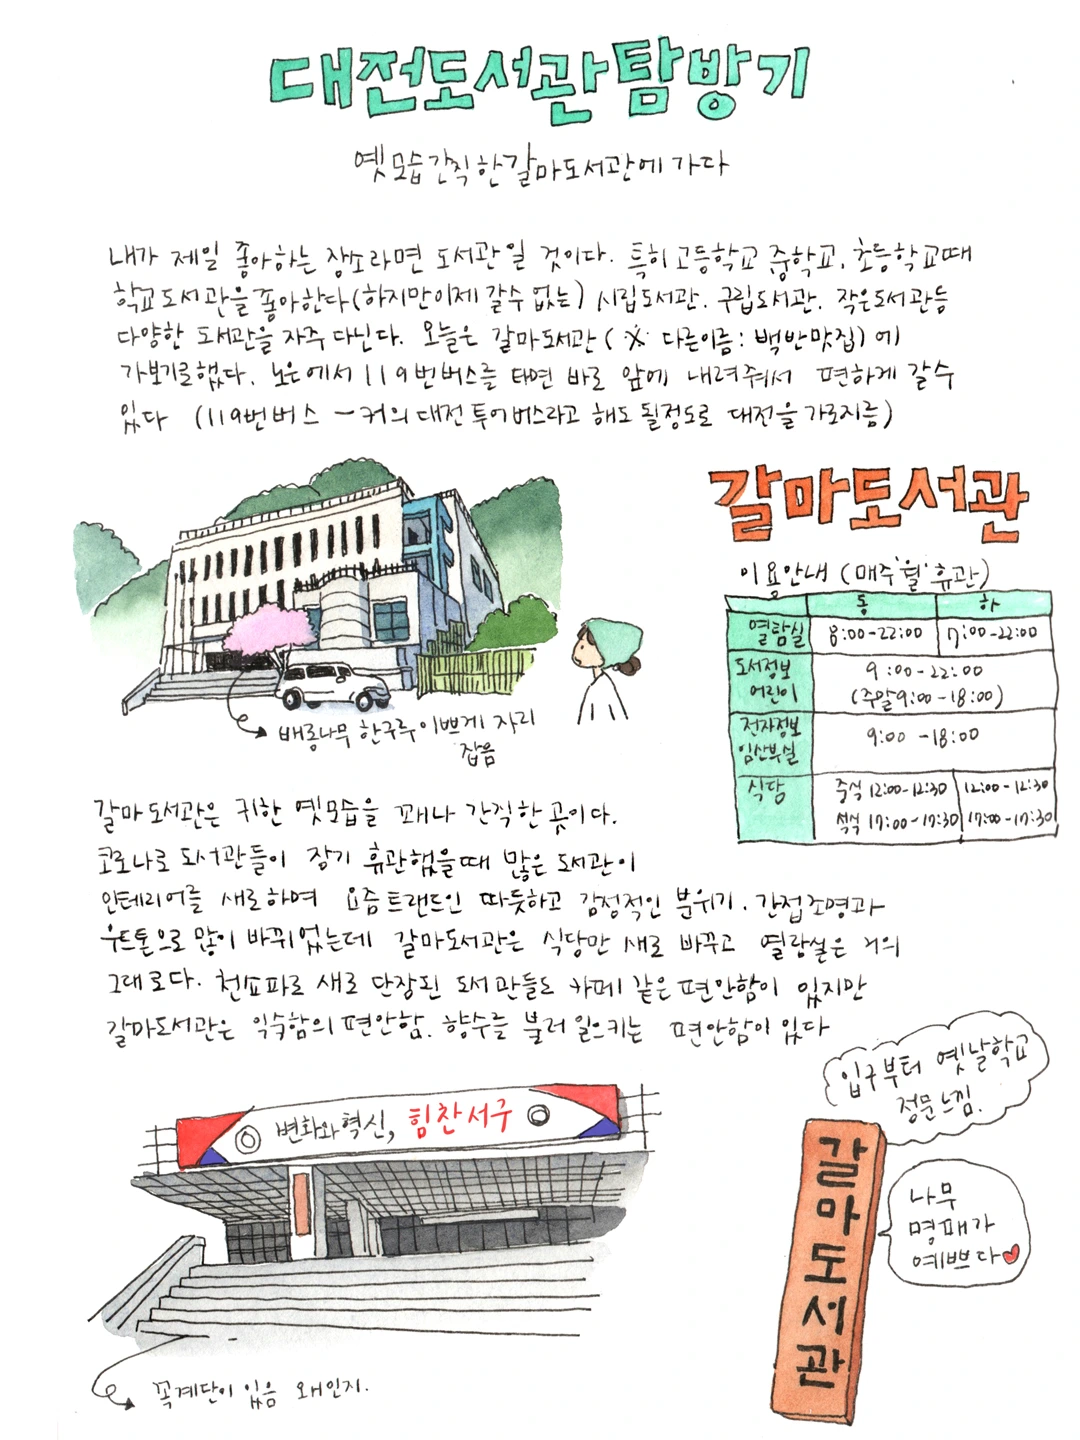 대전도서관탐방기
옛모습간직한갈마도서관에 가다
내가 제일 좋아하는 장소라면 도서관일 것이다. 특히 고등학교 중학교, 초등학교때
학교도서관을 좋아한다(하지만이제 갈수 없는) 시립도서관. 구립도서관. 작은도서관등
다양한 도서관을 자주 다닌다. 오늘은 갈마도서관 (※ 다른이름: 백반맛집)에
가보기로했다. 노은에서 119번버스를 타면 바로 앞에 내려줘서 편하게 갈수
있다 (119번버스 - 거의 대전 투어버스라고 해도 될정도로 대전을 가로지름)
갈마도서관
이용안내 (매주'월'휴관)
동 하
열람실 8:00-22:00 7:00-22:00
도서정보 9:00-22:00
어린이 (주말9:00-18:00)
전자정보 9:00-18:00
임산부실
식당 중식 12:00-12:30 12:00-12:30
석식 17:00-17:30 17:00-17:30
배롱나무 한그루 이쁘게 자리
잡음
갈마도서관은 귀한 옛모습을 꽤나 간직한 곳이다.
코로나로 도서관들이 장기 휴관했을때 많은 도서관이
인테리어를 새로하며 요즘트랜드인 따듯하고 감정적인 분위기. 간접조명과
우드톤으로 많이 바뀌었는데 갈마도서관은 식당만 새로 바꾸고 열람실은 거의
그대로다. 천쇼파로 새로 단장된 도서관들도 카페 같은 편안함이 있지만
갈마도서관은 익숙함의 편안함. 향수를 불러 일으키는 편안함이 있다
변화와 혁신, 힘찬서구
입구부터 옛날학교
정문느낌.
갈마도서관
나무
명패가
예쁘다
꼭계단이 있음 왜인지.